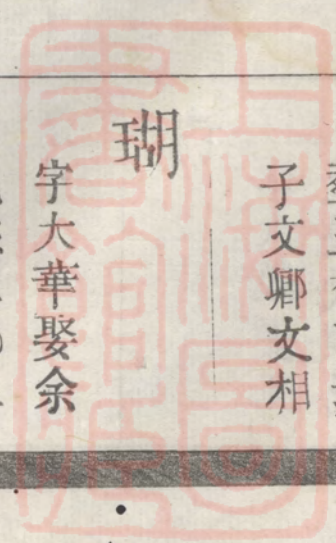 子文卿文相
瑚
字大華娶余